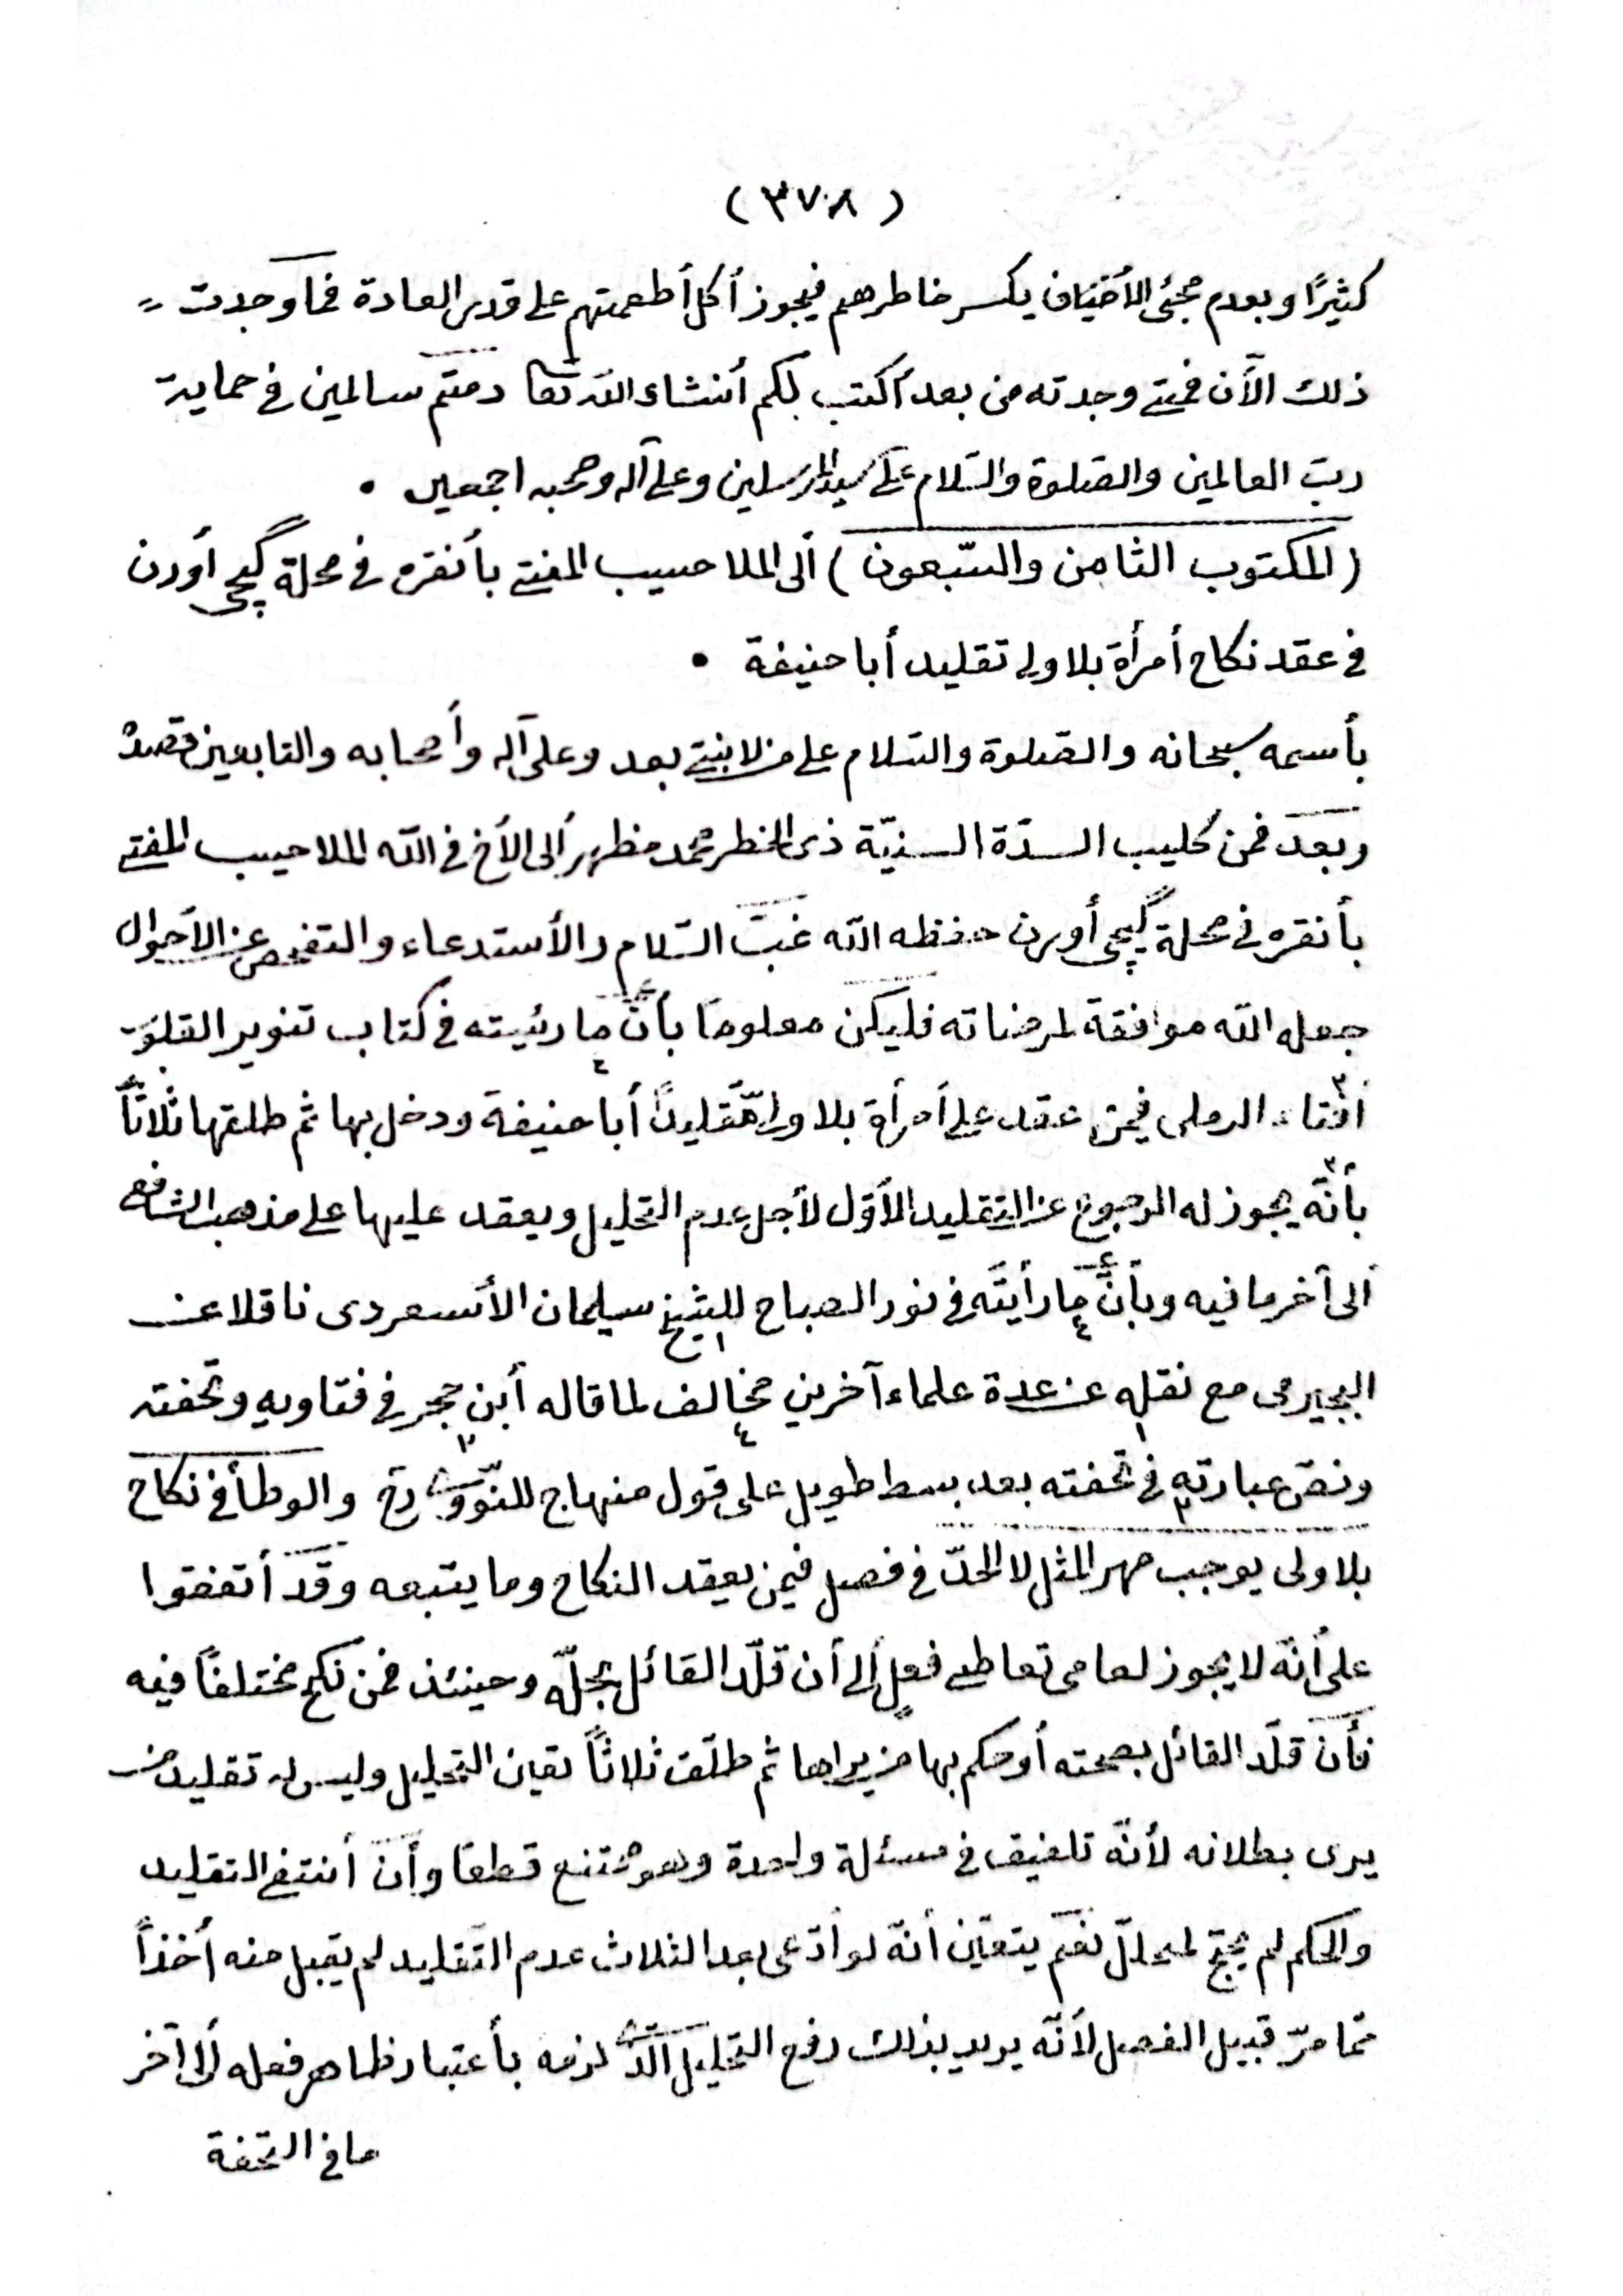 (٣٧٨)
كثيرًا وبعدم مجئ الأضياف يكسر خاطرهم فيجوز أكل أطعمتهم على قدر العادة فما وجدت
ذلك الآن فمتى وجدته من بعد أكتب لكم أنشاء الله تعا دمتم سالمين فى حماية
رب العالمين والصلوة والسّلام على سيد المرسلين وعلى آله وصحبه اجمعين •
(المكتوب الثامن والسّبعون) ألى الملا حبيب المفتى بأنقره فى محلة گپچى أورن
فى عقد نكاح أمرأة بلا ولى تقليد أبا حنيفة •
بأسمه سبحانه والصّلوة والسّلام على من لا نبىّ بعد وعلى آله وأصحابه والتابعين قصده
وبعد فمن كليب السدّة السنيّة ذى الخطر محمد مظهر ألى الأخ فى الله الملا حبيب المفتى
بأنقره فى محلة گپچى أورن حفظه الله غبّ السّلام والأستدعاء والتفحص عن الأحوال
جعله الله موافقة لمرضاته فليكن معلومًا بأنّ ما رئيته فى كتاب تنوير القلوب
أفتاء الرملى فيمن عقد على أمرأة بلا ولىّ تقليدًا أبا حنيفة ودخل بها ثم طلقها ثلاثًا
بأنّه يجوز له الرجوع عن التقليد الأوّل لأجل عدم التحليل ويعقد عليها على مذهب الشافعى
ألى آخر ما فيه وبأنّ ما رأيته فى نور الصباح للشيخ سليمان الأسعردى ناقلا عن
البجيرمى مع نقله عن عدة علماء آخرين مخالف لما قاله أبن حجر فى فتاويه وتحفته
ونصّ عبارته فى تحفته بعد بسط طويل على قول منهاج للنّووىّ رح والوطأ فى نكاح
بلا ولى يوجب مهر المثل لا الحدّ فى فصل فيمن يعقد النكاح وما يتبعه وقد أتفقوا
على أنّه لا يجوز لعامى تعاطى فعل ألى أن قلّد القائل بحلّه وحينئذ فمن نكح مختلفًا فيه
فأن قلّد القائل بصحته أو حكم بها من يراها ثم طلّق ثلاثًا تعين التحليل وليس له تقليد من
يرى بطلانه لأنّه تلفيق فى مسئلة واحدة وهو ممتنع قطعًا وأن أنتفى التقليد
والحكم لم يحتج لمحلل نعم يتعيّن أنّه لو أدّعى بعد الثلاث عدم التّقليد لم يقبل منه أخذًا
ممّا مرّ قبيل الفصل لأنّه يريد بذلك رفع التحليل الّذى لزمه بأعتبار ظاهر فعله ألى آخر
ما فى التحفة